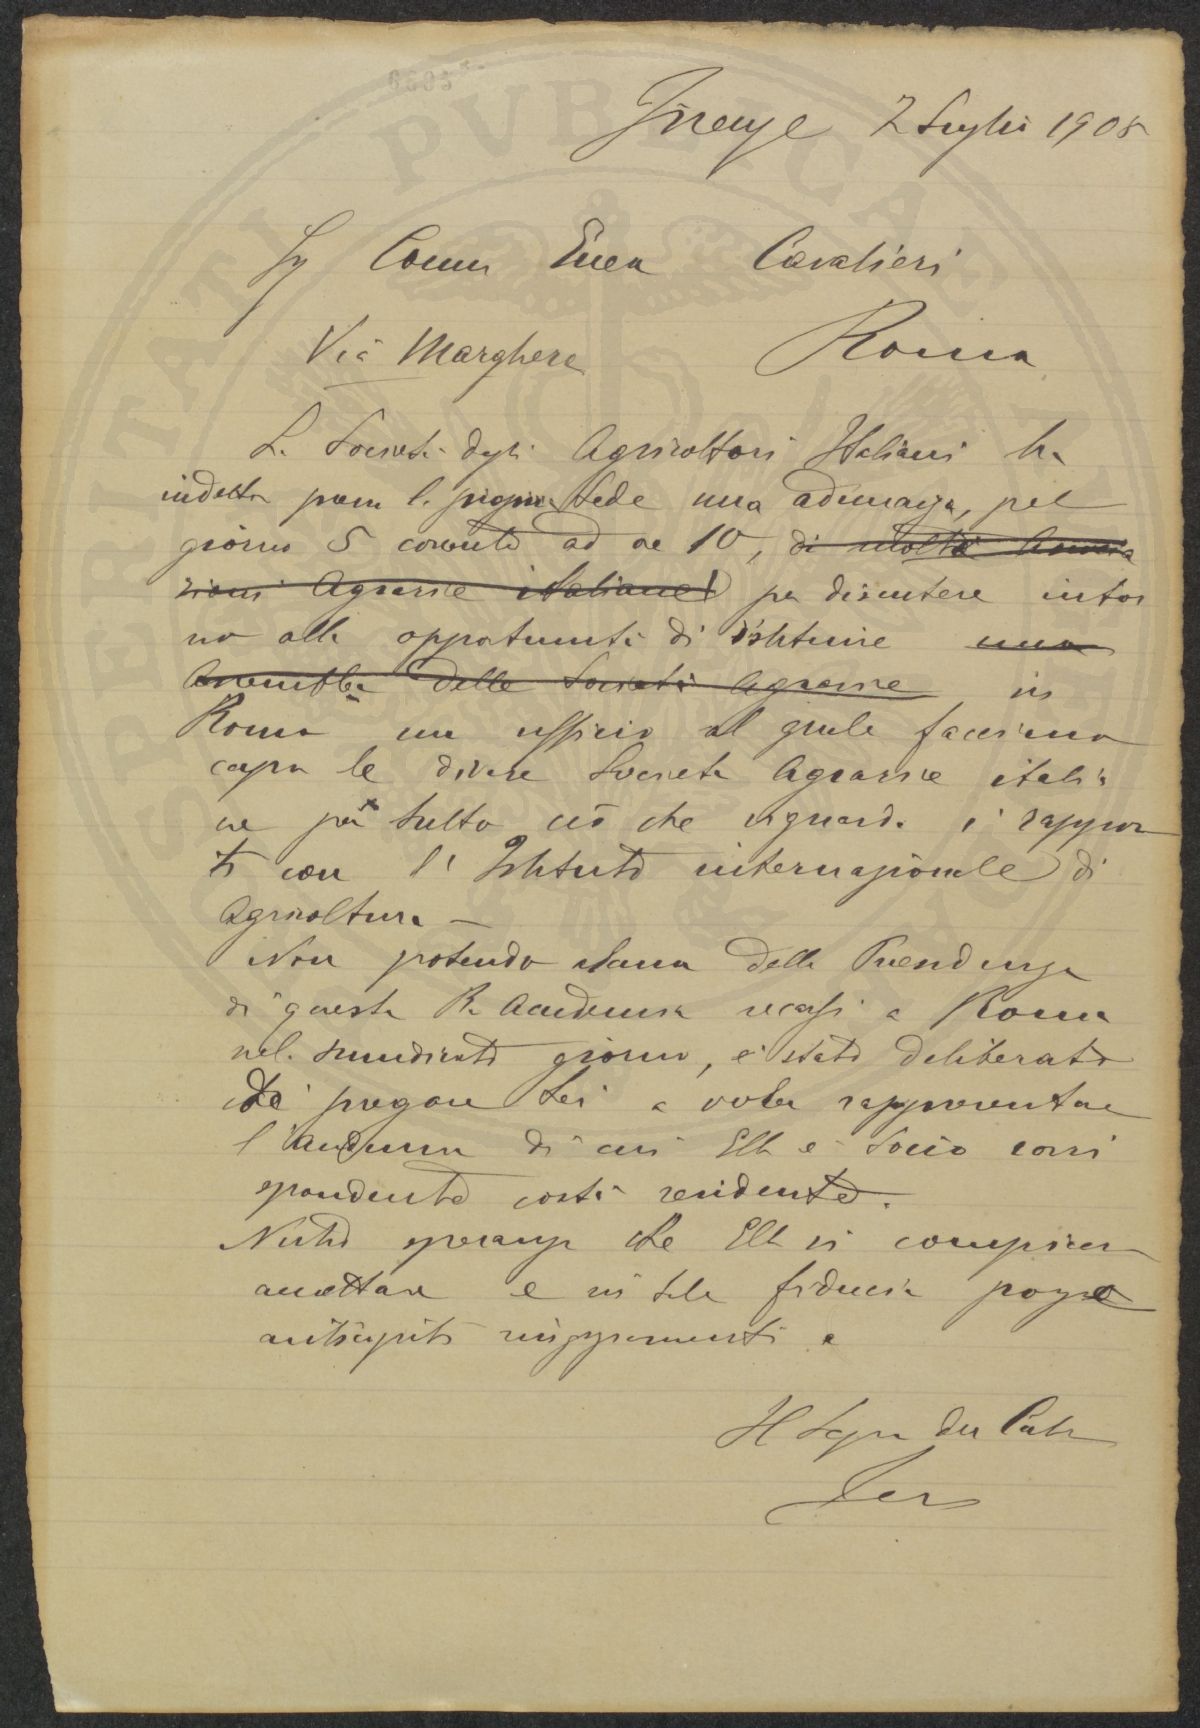 Firenze 2 Luglio 1908
Sg Comm Enea Cavalieri
Via Marghera Roma
La Società degli Agricoltori Italiani ha
indetta presso la propria sede una adunanza, pel
giorno 5 corrente ad ore 10, di molte Associa
zioni Agrarie italiane per discutere intor
no alla opportunità di istituire una
Assemblea delle Società Agrarie in
Roma un ufficio al quale facciano
capo le diverse Società Agrarie italia
ne per tutto ciò che riguarda i rappor
ti con l'Istituto internazionale di
Agricoltura —
Non potendo alcuno della Presidenza
di questa R. Accademia recarsi a Roma
nel summdicato giorno, è stato deliberato
di pregare Lei a voler rappresentare
l'Accademia di cui Ella è Socio corri
spondente costà residente.
Nutro speranza che Ella si compiaccia
accettare e in tale fiducia porge
anticipati ringraziamenti e
Il Segr